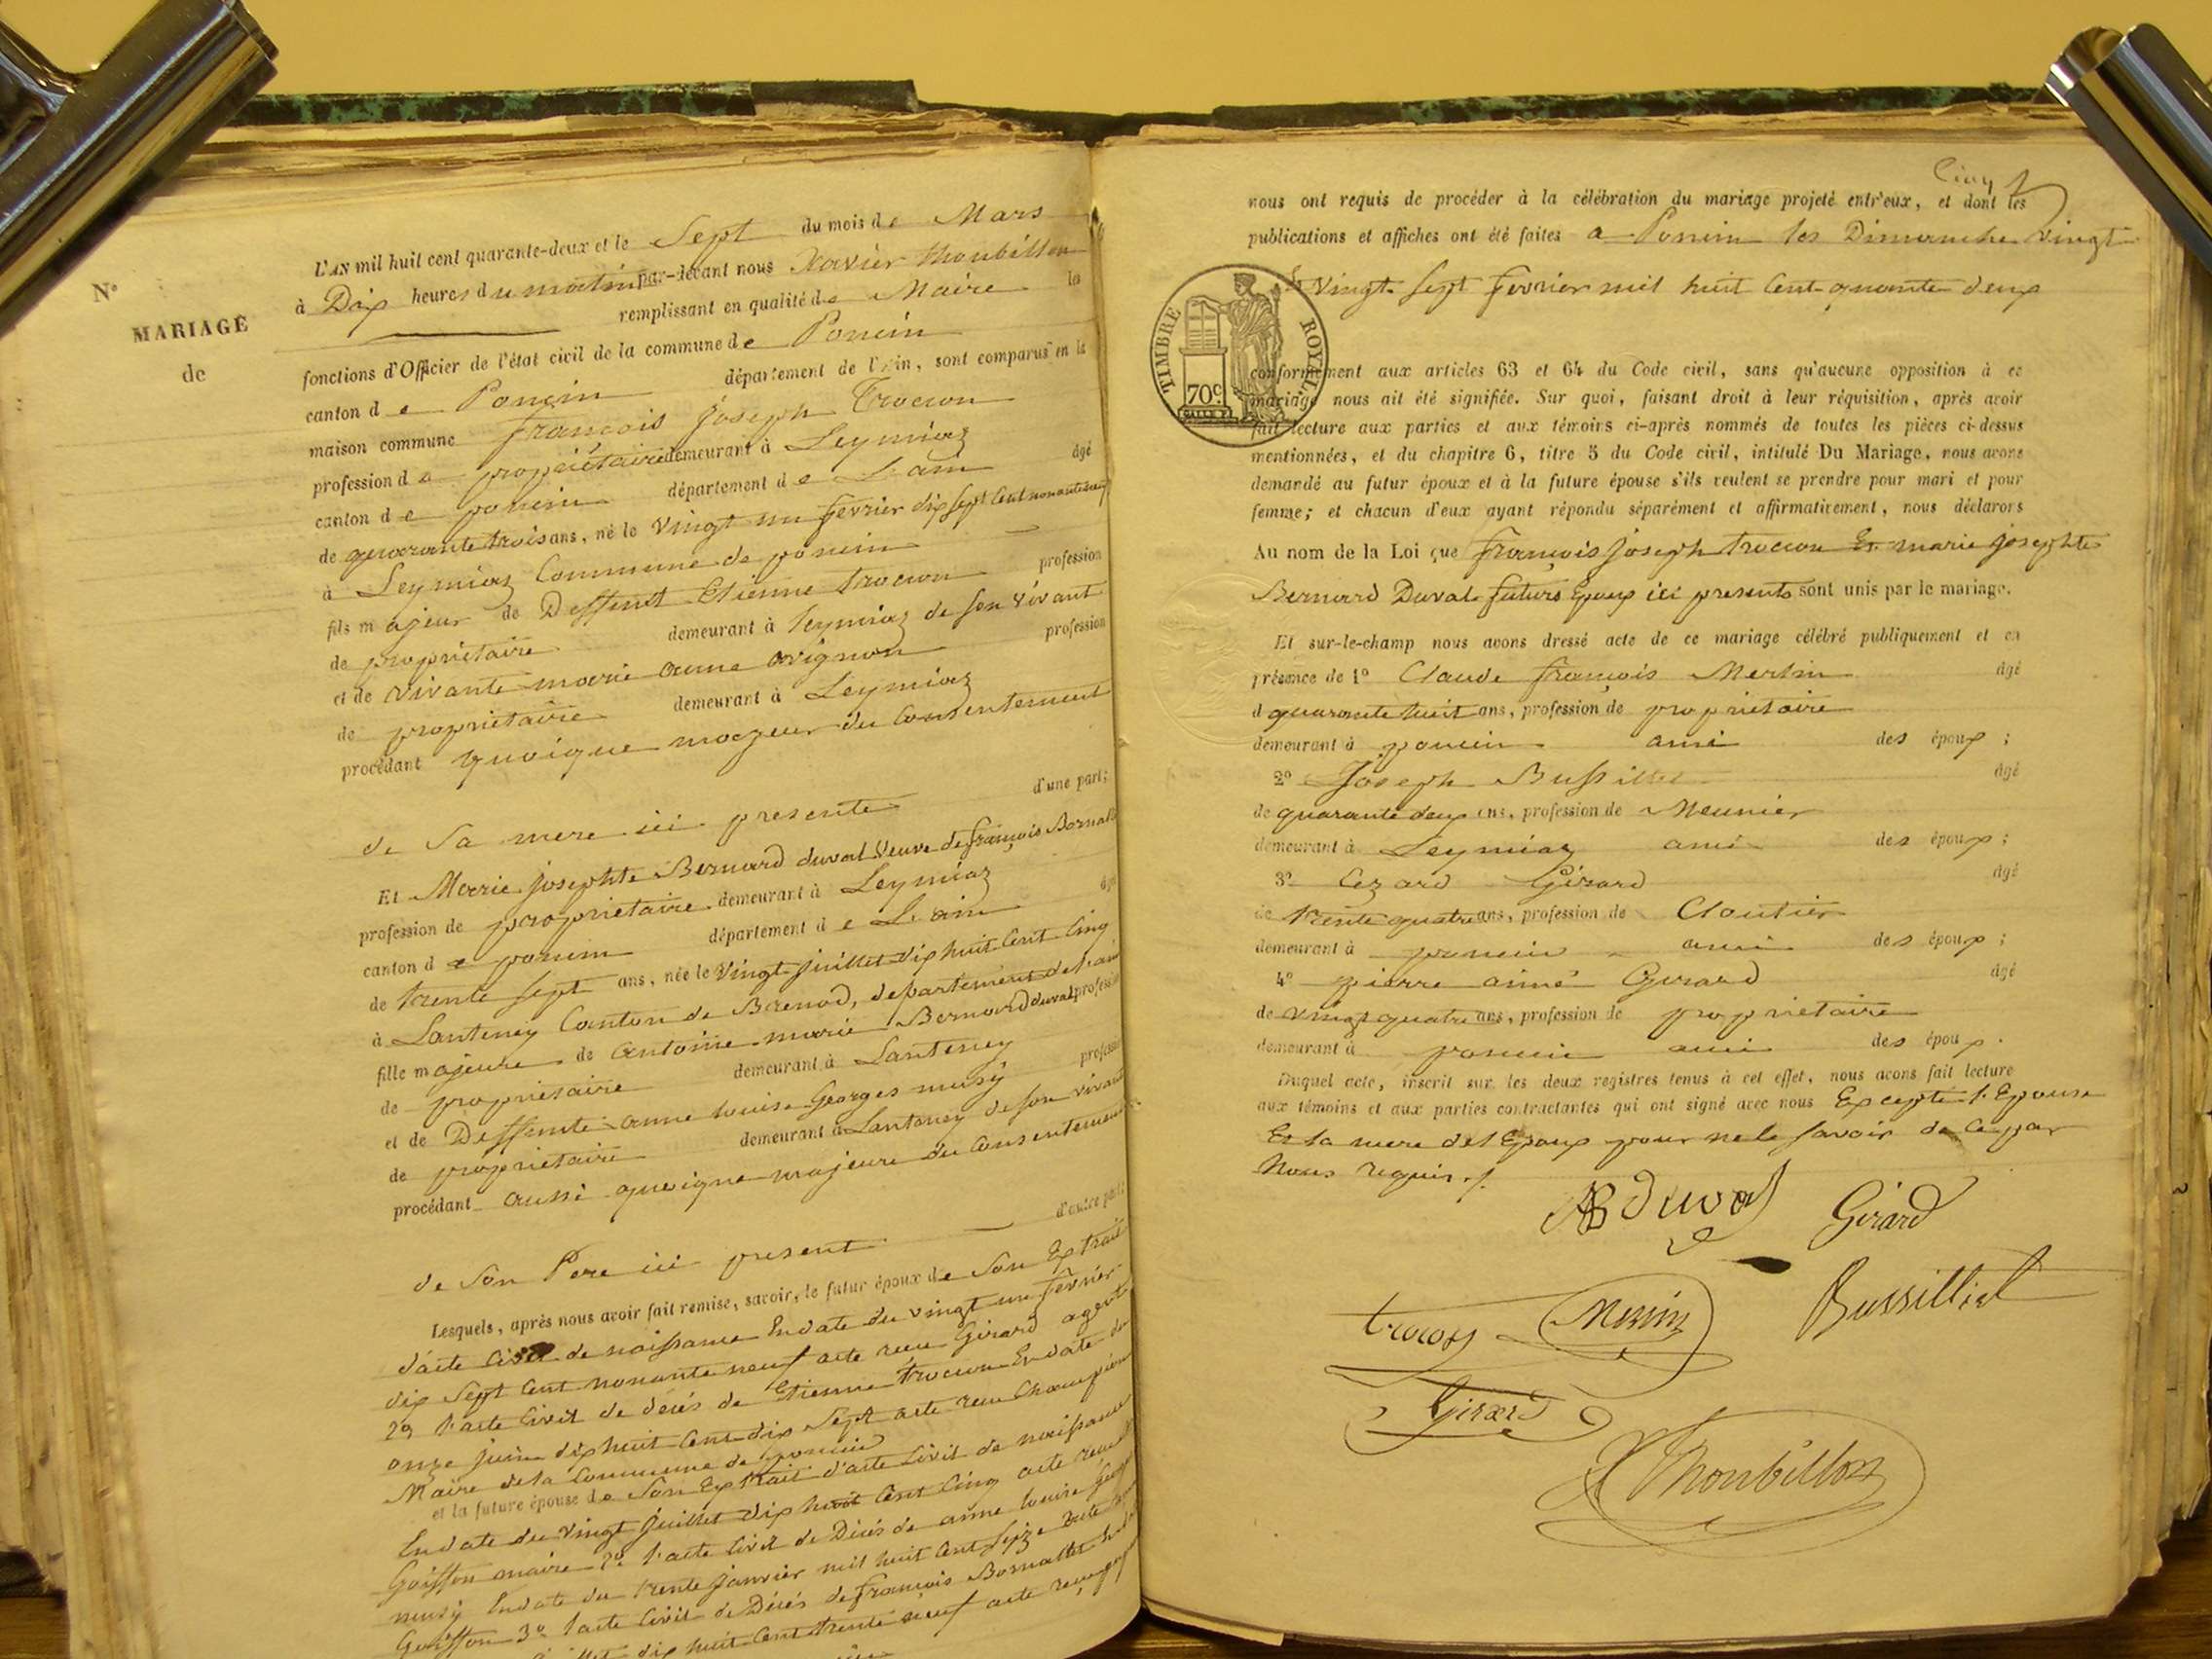 N°
MARIAGE
de
L'AN mil huit cent quarante-deux et le Sept du mois de Mars
à Dix heures du matin par-devant nous Xavier thoubillon
remplissant en qualité de Maire les
fonctions d'Officier de l'état civil de la commune de Poncin
canton de Poncin département de l'Ain, sont comparus en la
maison commune françois joseph Trocon
profession de propriétaire demeurant à Leymiaz
canton de poncin département de L'ain âgé
de quarante trois ans, né le vingt un fevrier dix sept Cent nonante neuf
à Leymiaz Commune de poncin
fils majeur de Deffunt Etienne trocon profession
de propriétaire demeurant à leymiaz de son vivant
et de vivante marie anne avignon profession
de propriétaire demeurant à Leymiaz
procédant quoique majeur du Consentement
de Sa mere ici presente d'une part;
Et Marie josephte Bernard duval veuve de françois Bornallet
profession de propriétaire demeurant à Leymiaz
canton de poncin département de L'ain
de trente sept ans, née le vingt juillet dix huit Cent Cinq
à Lanteney Canton de Brenod, departement de l'ain
fille majeure de antoine marie Bernard duval profession
de propriétaire demeurant à Lanteney
et de Deffunte anne louise Georges musy profession
de propriétaire demeurant à Lanteney de son vivant
procédant aussi quoique majeure du Consentement
de Son Pere ici present d'autre part:
Lesquels, après nous avoir fait remise, savoir, le futur époux de Son Extrait
d'acte Civil de naissance En date du vingt un fevrier
dix Sept Cent nonante neuf acte recu Girard agent
2° l'acte Civil de décés de Etienne trocon En date du
onze juin dix huit Cent dix Sept acte recu Champion
Maire de la Commune de poncin
et la future épouse de Son Extrait d'acte Civil de naissance
En date du vingt juillet dix huit Cent Cinq acte recu
Goiffon maire 2° l'acte Civil de Décés de anne louise Georges
musy En date du trente janvier mil huit Cent Seize acte
Goiffon 3° l'acte Civil de Décés de françois Bornallet
dix huit Cent trente neuf acte recu
Cinq
nous ont requis de procéder à la célébration du mariage projeté entr'eux, et dont les
publications et affiches ont été faites a Poncin les Dimanche vingt
& vingt Sept fevrier mil huit Cent quarante deux
TIMBRE ROYAL
70c
conformément aux articles 63 et 64 du Code civil, sans qu'aucune opposition à ce
mariage nous ait été signifiée. Sur quoi, faisant droit à leur réquisition, après avoir
fait lecture aux parties et aux témoins ci-après nommés de toutes les pièces ci-dessus
mentionnées, et du chapitre 6, titre 5 du Code civil, intitulé Du Mariage, nous avons
demandé au futur époux et à la future épouse s'ils veulent se prendre pour mari et pour
femme; et chacun d'eux ayant répondu séparément et affirmativement, nous déclarons
Au nom de la Loi que françois joseph trocon Et marie josephte
Bernard Duval futurs Epoux ici presents sont unis par le mariage.
Et sur-le-champ nous avons dressé acte de ce mariage célébré publiquement et en
présence de 1° Claude françois Merlin âgé
d quarante huit ans, profession de propriétaire
demeurant à poncin ami des époux;
2° Joseph Bussillet âgé
de quarante deux ans, profession de Meunier
demeurant à Leymiaz ami des époux;
3° Cezard Girard âgé
de trente quatre ans, profession de Cloutier
demeurant à poncin ami des époux;
4° pierre aimé Girard âgé
de vingt quatre ans, profession de propriétaire
demeurant à poncin ami des époux.
Duquel acte, inscrit sur les deux registres tenus à cet effet, nous avons fait lecture
aux témoins et aux parties contractantes qui ont signé avec nous Excepté l'Epouse
Et la mere de l'Epoux pour ne le savoir de Ce par
Nous requis ./.
AB duval Girard
trocon Merlin Bussilliet
Girard
X Thoubillon